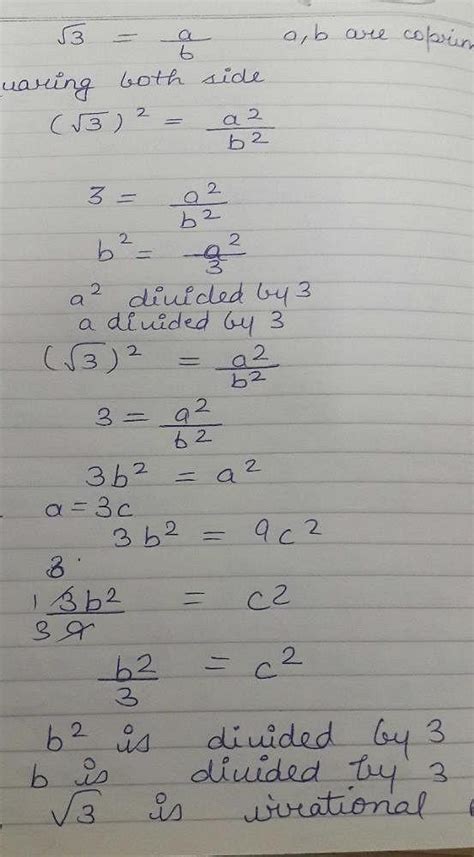 √3 = a/b a, b are coprim
uaring both side
(√3)² = a²/b²
3 = a²/b²
b² = a²/3
a² divided by 3
a divided by 3
(√3)² = a²/b²
3 = a²/b²
3b² = a²
a = 3c
3b² = 9c²
3
1 3b²/9 = c²
3
b²/3 = c²
b² is divided by 3
b is divided by 3
√3 is irrational